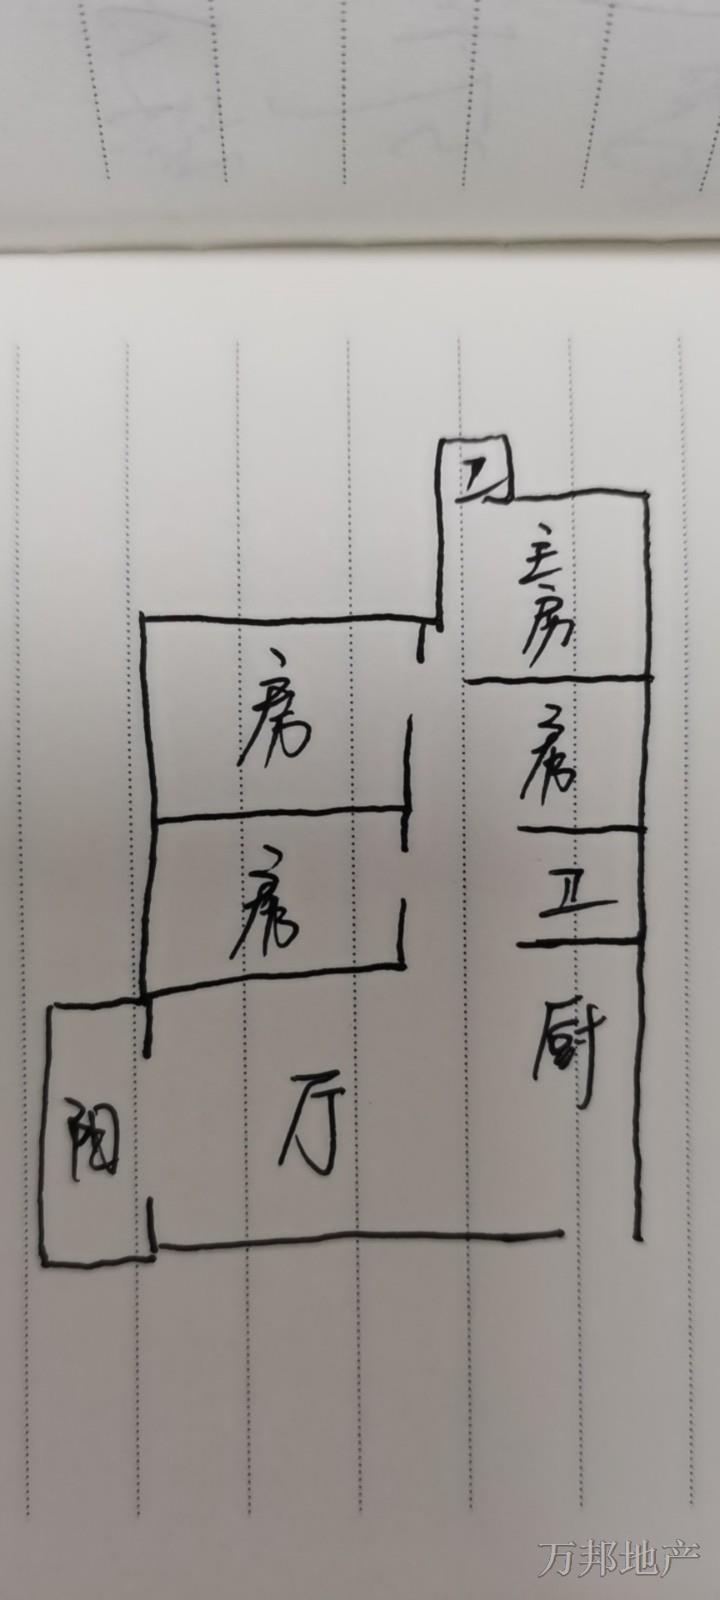 卫
主房
房
房
房
卫
厨
厅
阳
万邦地产